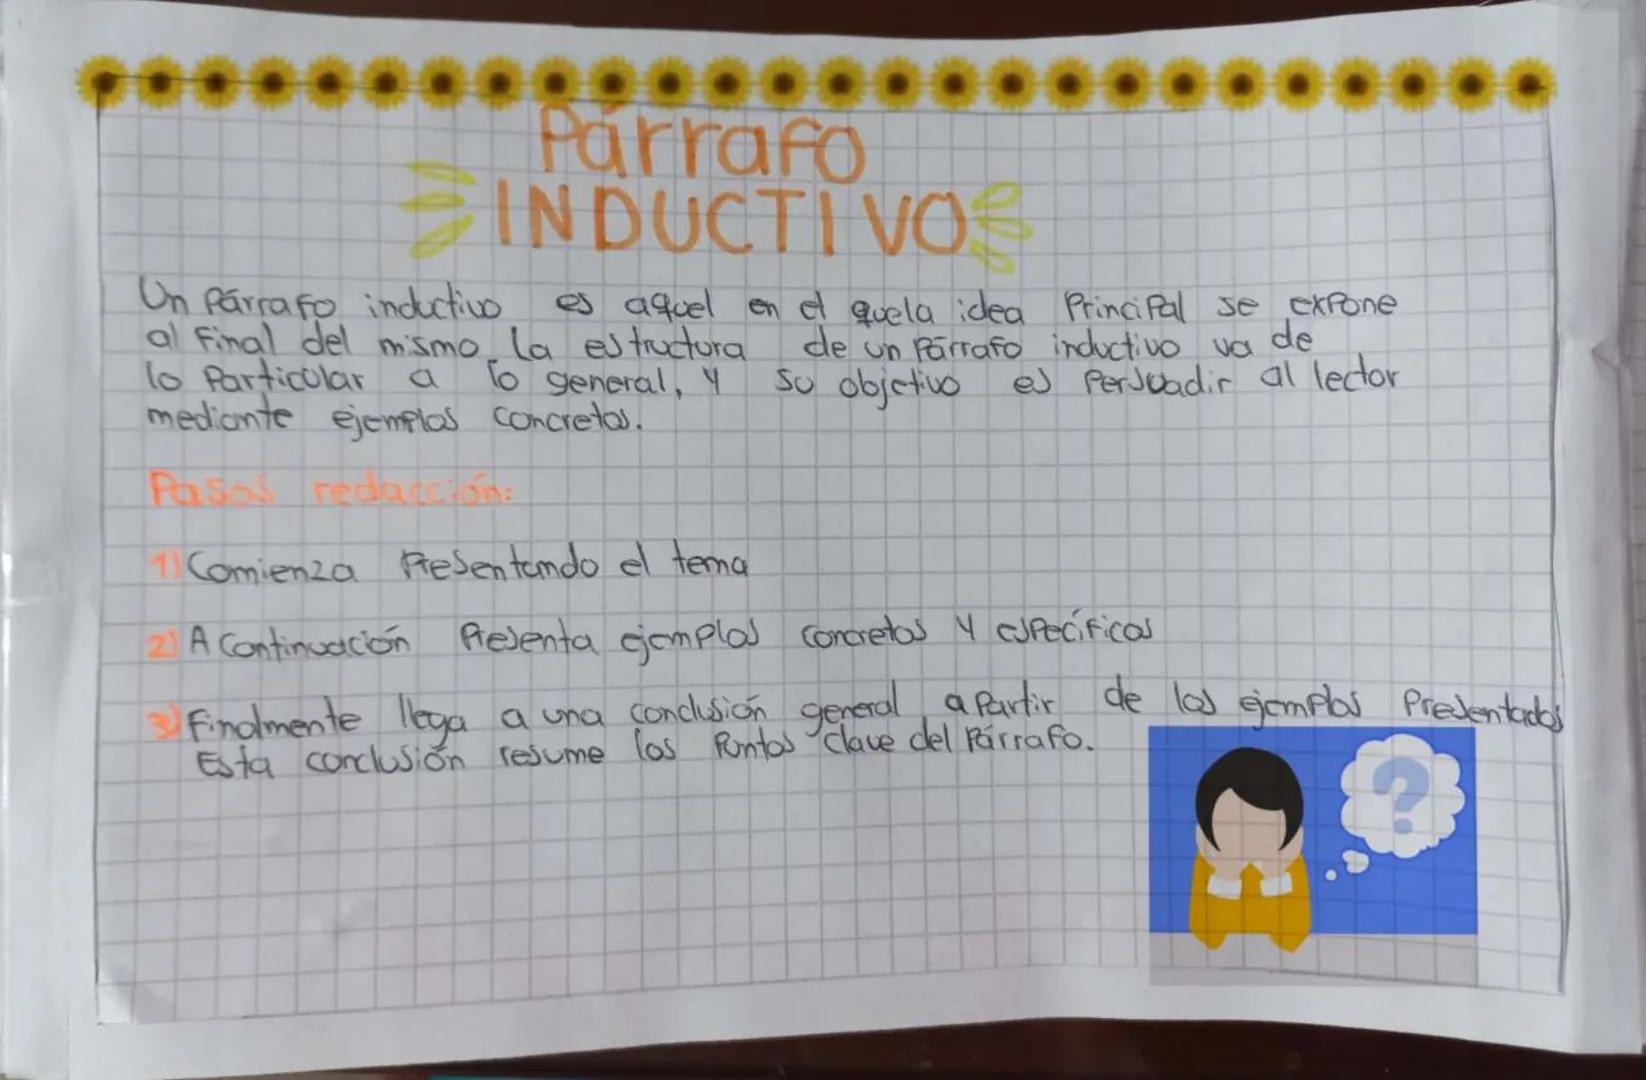 Párrafo
INDUCTIVO
Un Párrafo inductivo es aquel en el quela idea Principal se expone
al Final del mismo. la estructura de un Párrafo inductivo va de
lo Particular a lo general, y su objetivo es Persuadir al lector
mediante ejemplos concretos.
Pasos redacción:
1) Comienza Presentando el tema
2) A Continuación Presenta ejemplos concretos y específicos
3) Finalmente llega a una conclusión general a Partir de los ejemplos Presentados
Esta conclusión resume los Puntos clave del Párrafo.
?